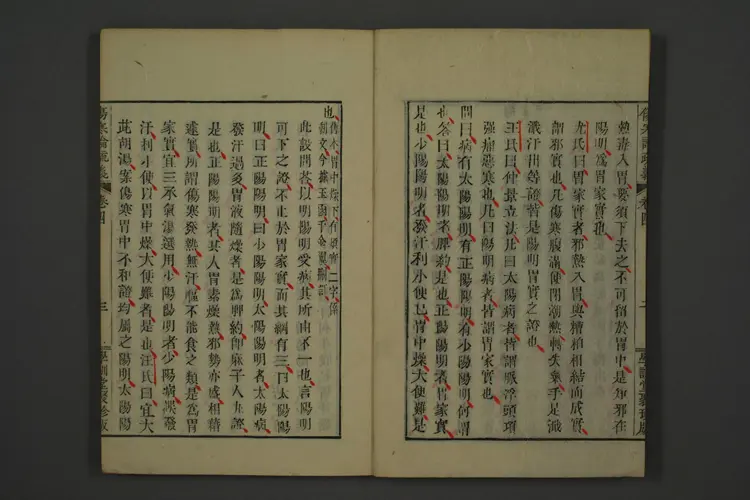 熱毒入胃要須下去之不可留於胃中是知邪在
陽明為胃家實也
尤氏曰胃家實者邪熱入胃與糟粕相結而成實
謂邪實也凡傷寒腹滿便閉潮熱轉失氣手足濈
濈汗出等證皆是陽明胃實之證也
王氏曰仲景立法凡曰太陽病者皆謂脈浮頭項
強痛惡寒也凡曰陽明病者皆謂胃家實也
問曰病有太陽陽明有正陽陽明有少陽陽明何謂
也答曰太陽陽明者脾約是也正陽陽明者胃家實
是也少陽陽明者發汗利小便已胃中燥大便難是
也
此設問答以明陽明受病其所由不一也言陽明
可下之證不止於胃家實而其綱有三曰太陽陽
明曰正陽陽明曰少陽陽明太陽陽明者太陽病
發汗過多胃液隨燥者是為脾約即麻子人丸證
是也正陽陽明者其人胃素燥熱邪勢亦盛相藉
遂實所謂傷寒發熱無汗不能食之類是為胃
家實宜三承氣湯選用少陽陽明者少陽病誤發
汗利小便以胃中燥大便難者是也汪氏曰宜大
茈胡湯案傷寒胃中不和證均屬之陽明太陽陽
傷寒論疏義
卷四
三
學訓堂聚珍版